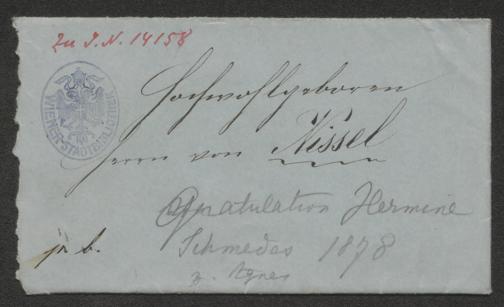 Zu I. N. 14158
WIENER STADTBIBLIOTHEK
Hochwohlgeboren
Herrn von Nissel
Gratulation Hermine
Schmedes 1878
z. Agnes